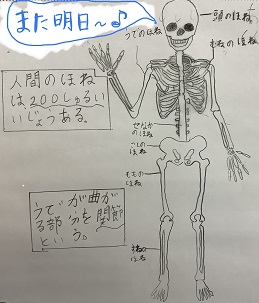 また明日〜♪
頭のほね
うでのほね
むねのほね
人間のほね
は、200しゅるい
いじょうある。
せなかのほね
こしのほね
もものほね
うでが曲が
る部分を関節
という。